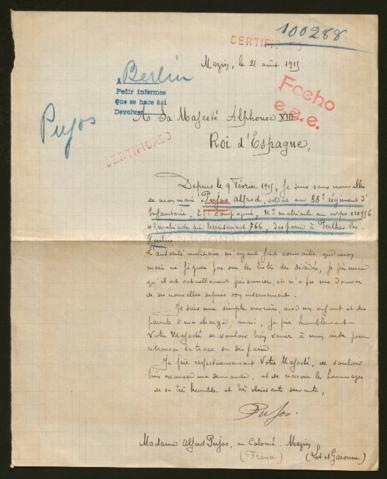 100288
CERTIFICADO
Mezin, le 21 août 1915
A Berlin
Pedir informes
que se hace así
Devolver
Fecho
e.e.e.
Pujos
A Sa Majesté Alphonse XIII
Roi d'Espagne,
CERTIFICADO
Depuis le 9 Février 1915, je suis sans nouvelles
de mon mari Pujos Alfred, soldat au 88e régiment d'
Infanterie, 2e compagnie, No matricule au corps
No matricule au recrutement 766, disparu à Perthes-les
Hurlus.
L'autorité militaire m'ayant fait connaître que mon
mari ne figure pas sur les listes des décédés, je présume
qu'il est actuellement prisonnier et n'a pu me donner
de ses nouvelles depuis son internement.
Je suis une simple ouvrière, avec un enfant et des
parents à ma charge; aussi, je prie humblement
Votre Majesté de vouloir bien venir à mon aide pour
retrouver la trace du disparu.
Je prie respectueusement Votre Majesté, de vouloir
bien excuser ma demande, et de recevoir les hommages
de sa très humble et très obéissante servante,
Pujos.
Madame Alfred Pujos, au Colomé, Mezin
(France) (Lot et Garonne)